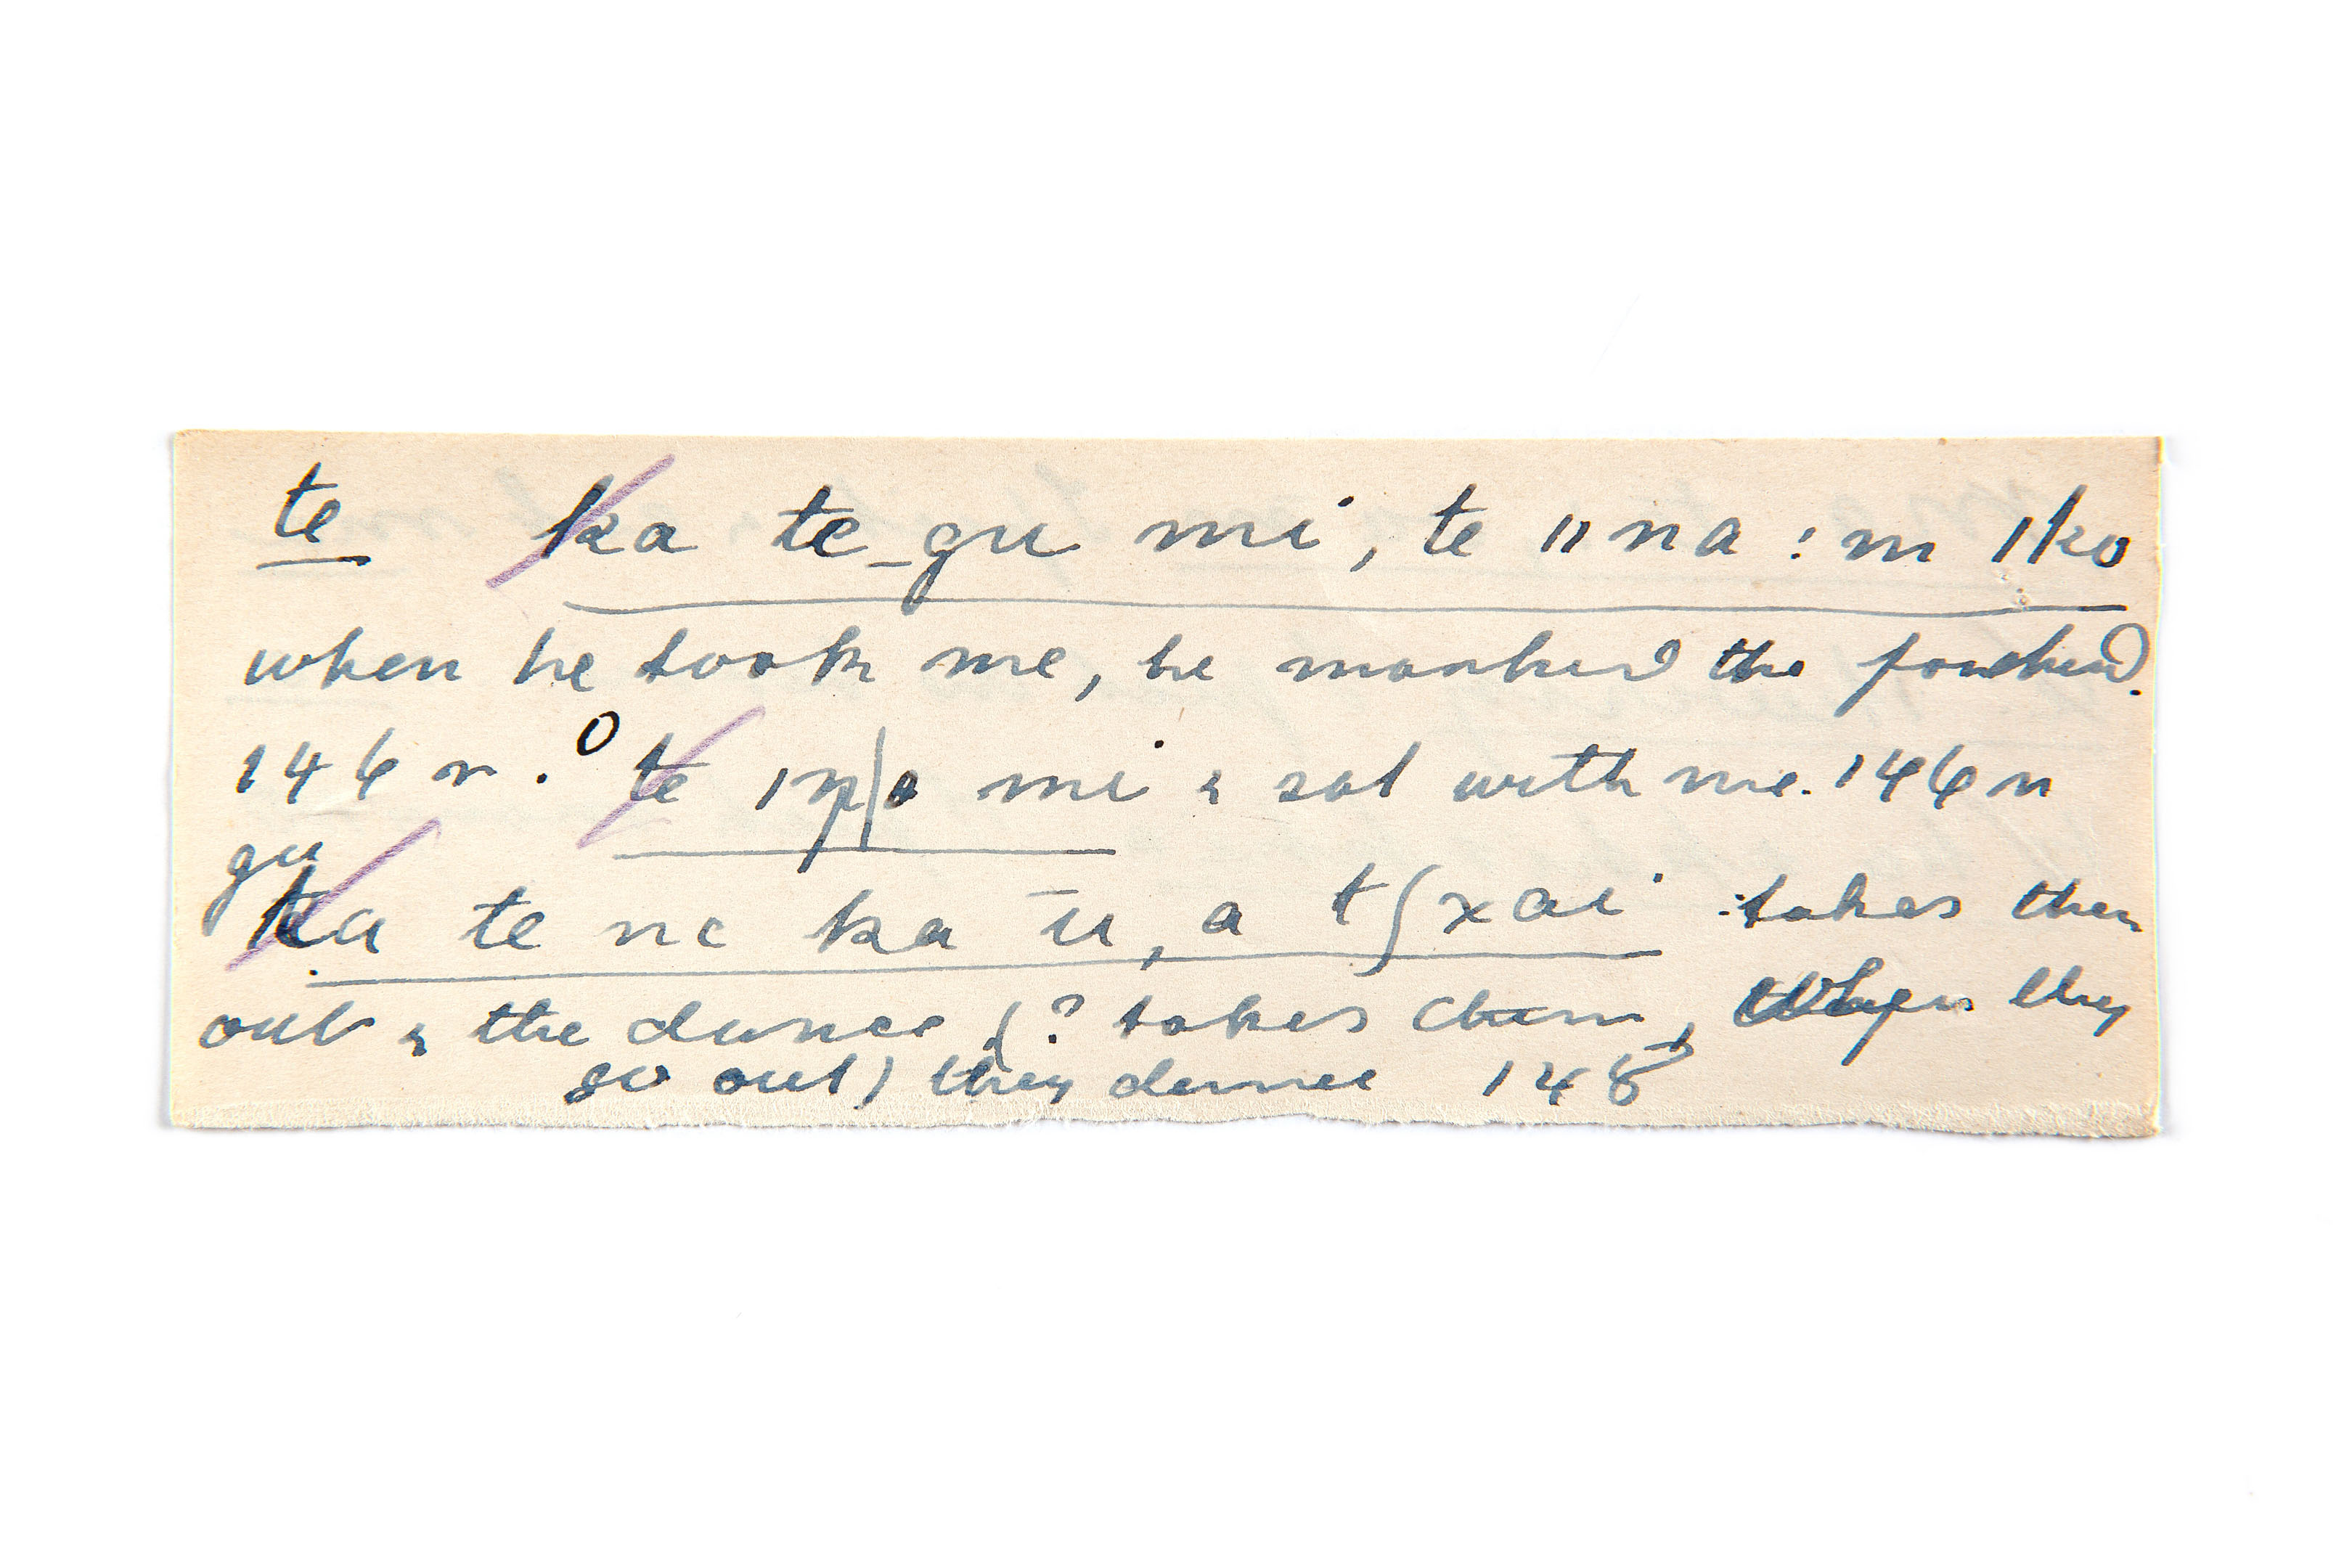 te ka te_gu mi, te ǁna:m ǀko
when he took me, he marked the forehead.
146 r. o te ǀŋ|o mi & sat with me. 146 r
gu
ka te ne ka ū, a tʃxai takes them
out & the dance (? takes them, when they
go out) they dance 148